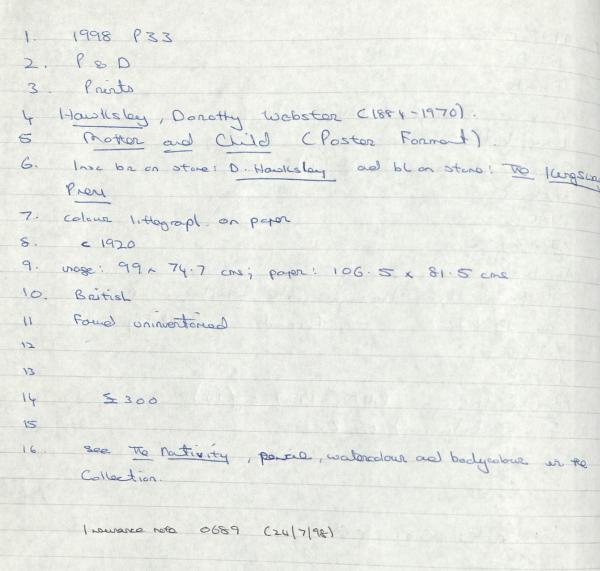 1. 1998 P33
2. P & D
3. Prints
4 Hawksley, Dorothy Webster (1884-1970).
5 Mother and Child (Poster Format).
6. Insc br on stone: D. Hawksley and bl on stone: The Kingsway
Press
7. colour lithograph on paper
8. c 1920
9. image: 99 x 74.7 cms; paper: 106.5 x 81.5 cms
10. British
11 Found uninventoried
12
13
14 £300
15
16. see The Nativity, pencil, watercolour and bodycolour in the
Collection.
Insurance note 0689 (24/7/98)